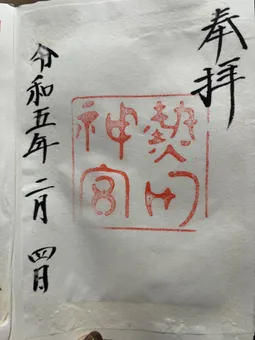 奉拝
熱田
神宮
令和五年 二月 四日